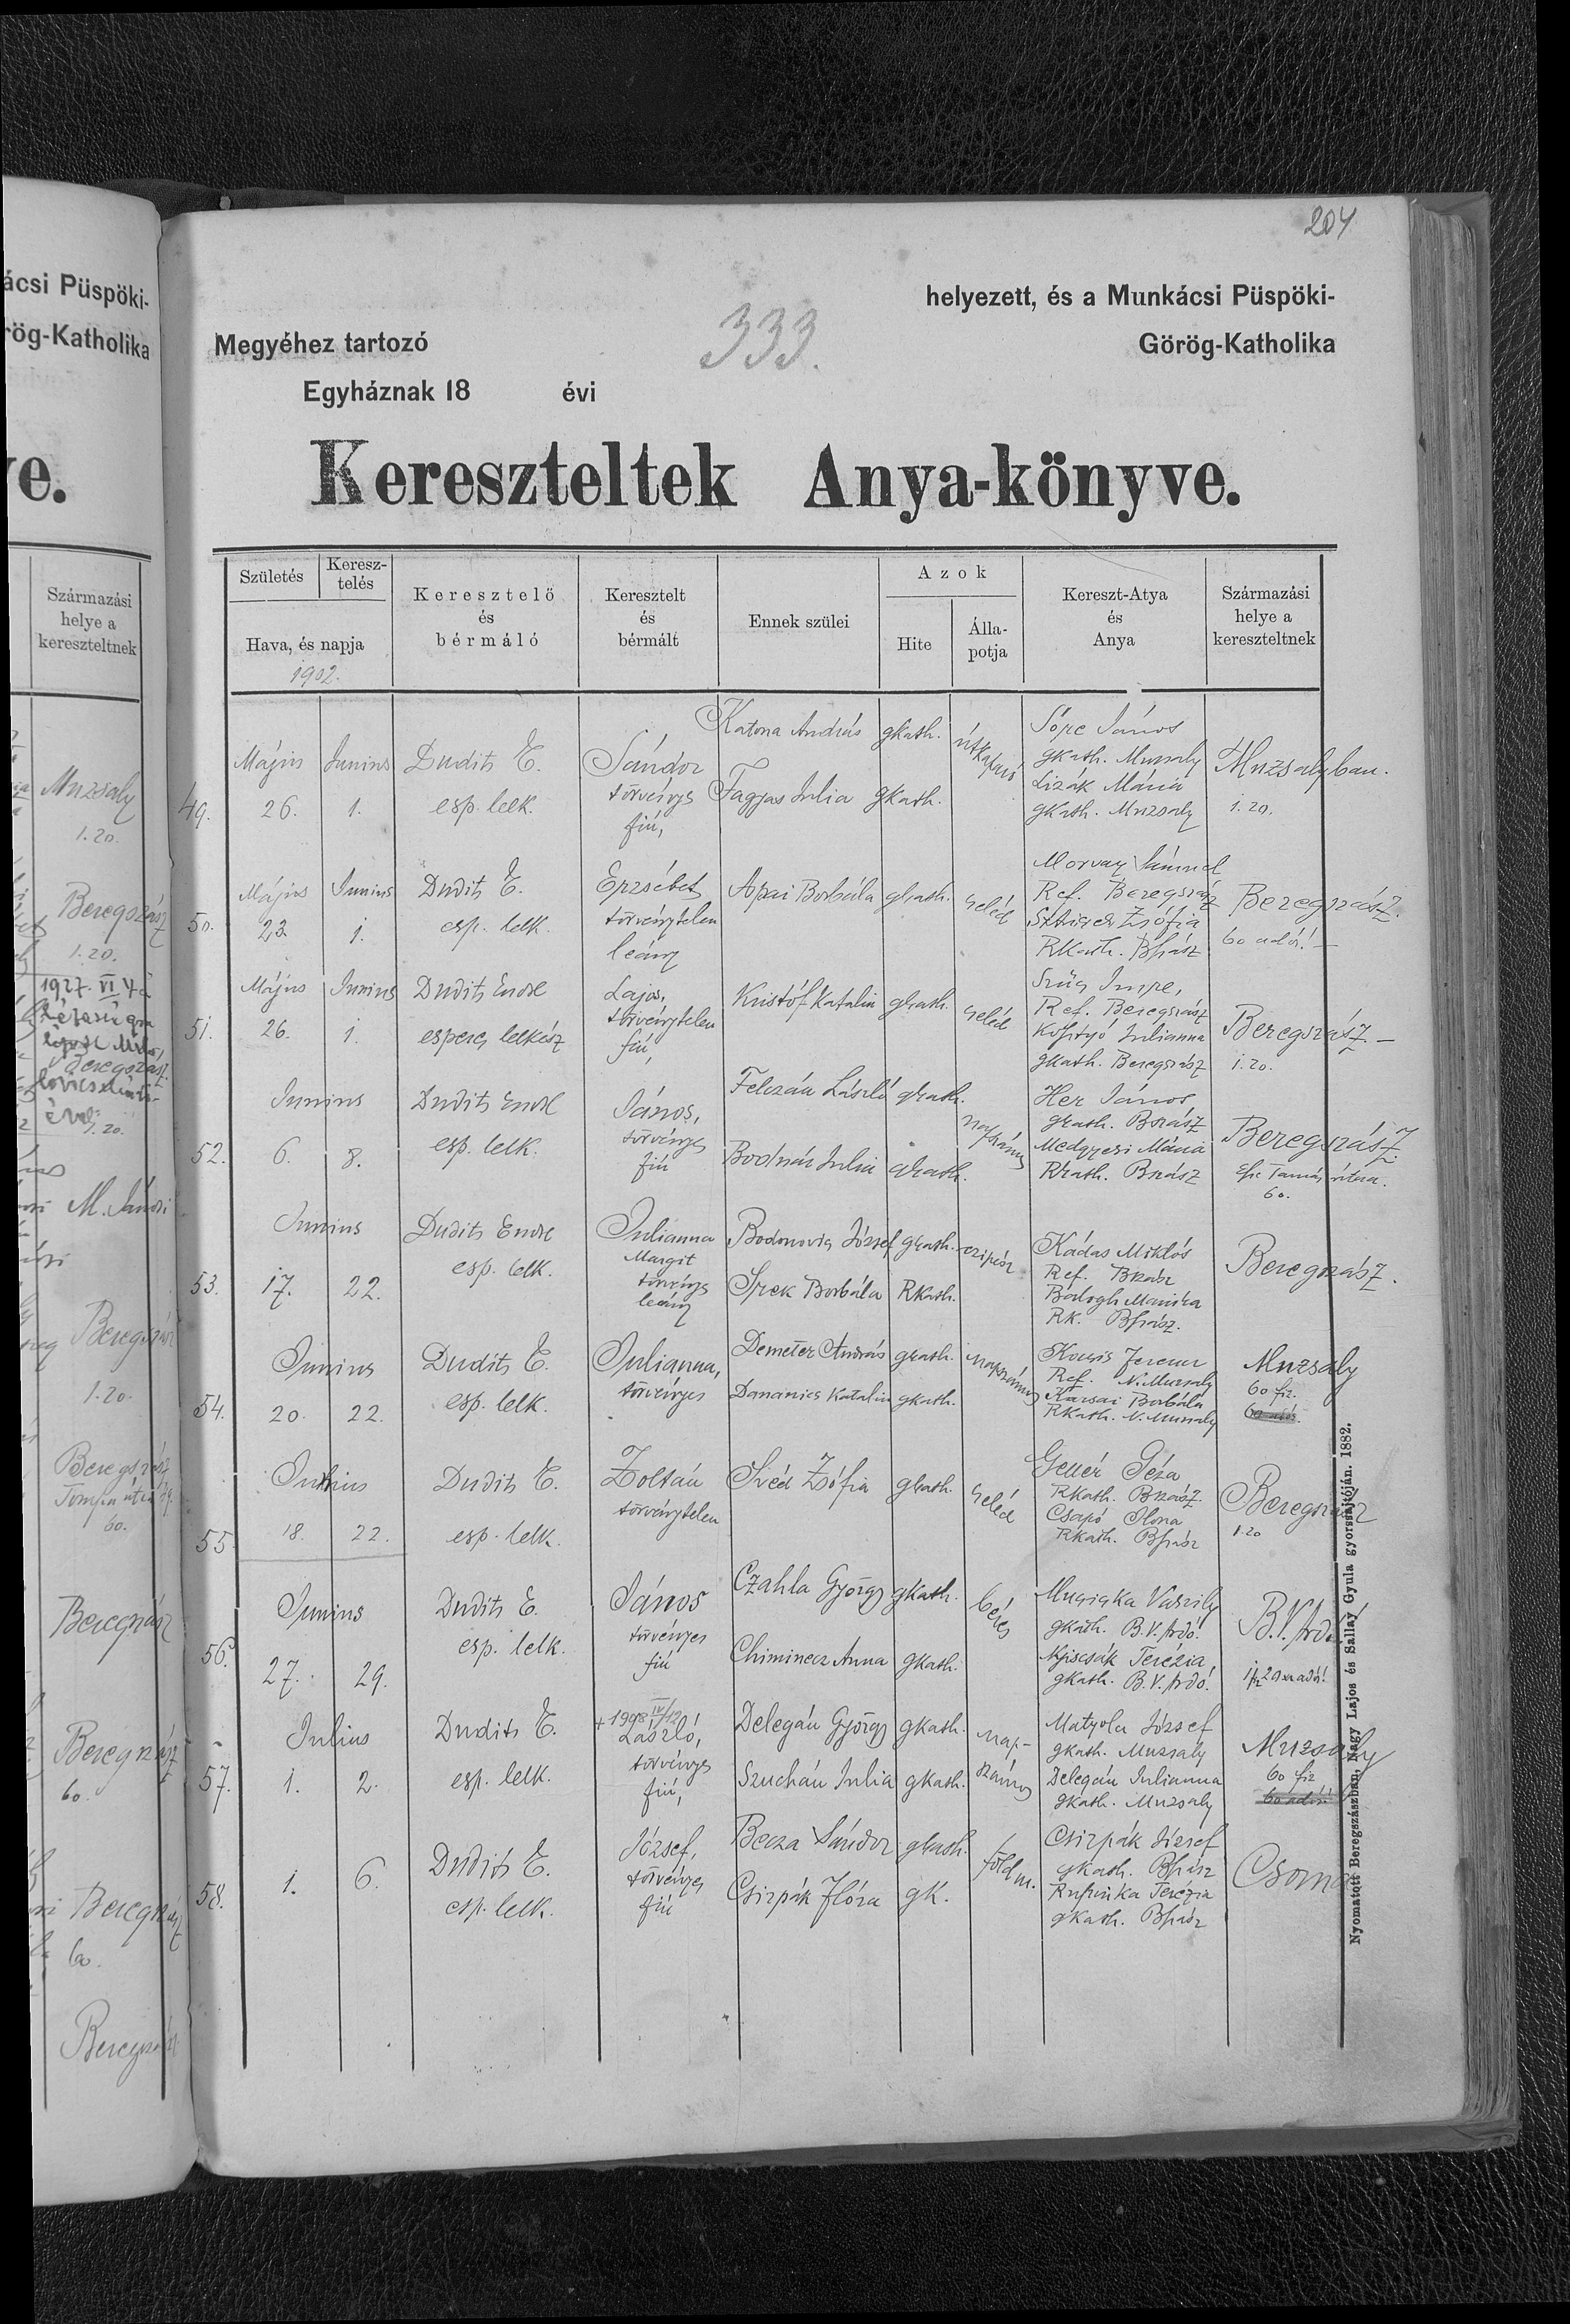 204
helyezett, és a Munkácsi Püspöki-
Megyéhez tartozó
333.
Görög-Katholika
Egyháznak 18 évi
Kereszteltek Anya-könyve.
Születés
Keresz-
telés
Hava, és napja
1902.
Keresztelő
és
bérmáló
Keresztelt
és
bérmált
Ennek szülei
Azok
Hite
Álla-
potja
Kereszt-Atya
és
Anya
Származási
helye a
kereszteltnek
49.
Május Junius
26. 1.
Dudits E.
esp. lelk.
Sándor
törvényes
fiú,
Katona András gkath.
Fagyas Julia gkath.
útkaparó
Sópe János
gkath. Muzsaly
Lizák Mária
gkath. Muzsaly
Muzsalyban.
1.20.
50.
Május Junius
23 1.
Dudits E.
esp. lelk.
Erzsébet
törvénytelen
leány
Apai Borbála gkath.
cseléd
Morvay Sámuel
Ref. Beregszász
Zsófia
RKath. Bszász
Beregszász.
60 adós!
51.
Május Junius
26. 1.
Dudits Endre
esperes lelkész
Lajos,
törvénytelen
fiú,
Kristóf Katalin gkath.
cseléd
Szűcs Imre,
Ref. Beregszász
Julianna
gkath. Beregszász
Beregszász.
1.20.
52.
Junius
6. 8.
Dudits Endre
esp. lelk.
János,
törvényes
fiú
Felczán László gkath.
Bodnár Julia gkath.
napszámos
Her János
gkath. Bszász
Medgyesi Mária
Rkath. Bszász
Beregszász.
Tamás utcza.
60.
53.
Junius
17. 22.
Dudits Endre
esp. lelk.
Julianna
Margit
törvényes
leány
Bodnovics József gkath.
Irek Borbála Rkath.
czipész
Kádas Miklós
Ref. Bszász
Balogh Mariska
RK. Bszász.
Beregszász.
54.
Junius
20. 22.
Dudits E.
esp. lelk.
Julianna,
törvényes
Demeter András gkath.
Dananics Katalin gkath.
napszámos
Kocsis Ferencz
Ref. N.Muzsaly
Karsai Borbála
RKath. N.Muzsaly
Muzsaly
60 fiz.
60 adós.
55.
Junius
18. 22.
Dudits E.
esp. lelk.
Zoltán
törvénytelen
Svéd Zsófia gkath.
cseléd
Gellér Géza
RKath. Bszász.
Csapó Ilona
RKath. Bszász
Beregszász
1.20
56.
Junius
27. 29.
Dudits E.
esp. lelk.
János
törvényes
fiú
Czahla György gkath.
Chiminecz Anna gkath.
béres
Musicska Vaszily
gkath. B.V.Ardó!
Terézia
gkath. B.V.Ardó!
B.V.Ardó
57.
Julius
1. 2.
Dudits E.
esp. lelk.
+1998 IV/12
László,
törvényes
fiú,
Delegán György gkath.
Szuchán Julia gkath.
nap-
számos
Matyola József
gkath. Muzsaly
Delegán Julianna
gkath. Muzsaly
Muzsaly
60 fiz
60 adós!
58.
1. 6.
Dudits E.
esp. lelk.
József,
törvényes
fiú
Becza Sándor gkath.
Csirpák Flóra gk.
földm.
Csirpák József
gkath. Bszász
Ruszinka Terézia
gkath. Bszász
Csoma
Nyomatott Beregszászban, Nagy Lajos és Sallay Gyula gyorssajtóján. 1882.
ácsi Püspöki-
rög-Katholika
ve.
Származási
helye a
kereszteltnek
Muzsaly
1.20.
Beregszász
1.20.
1927. VI
1.20.
M. Jánosi
Beregszász
1.20.
Beregszász
60.
Beregszász
Beregszász
60.
Beregszász
60.
Beregszász